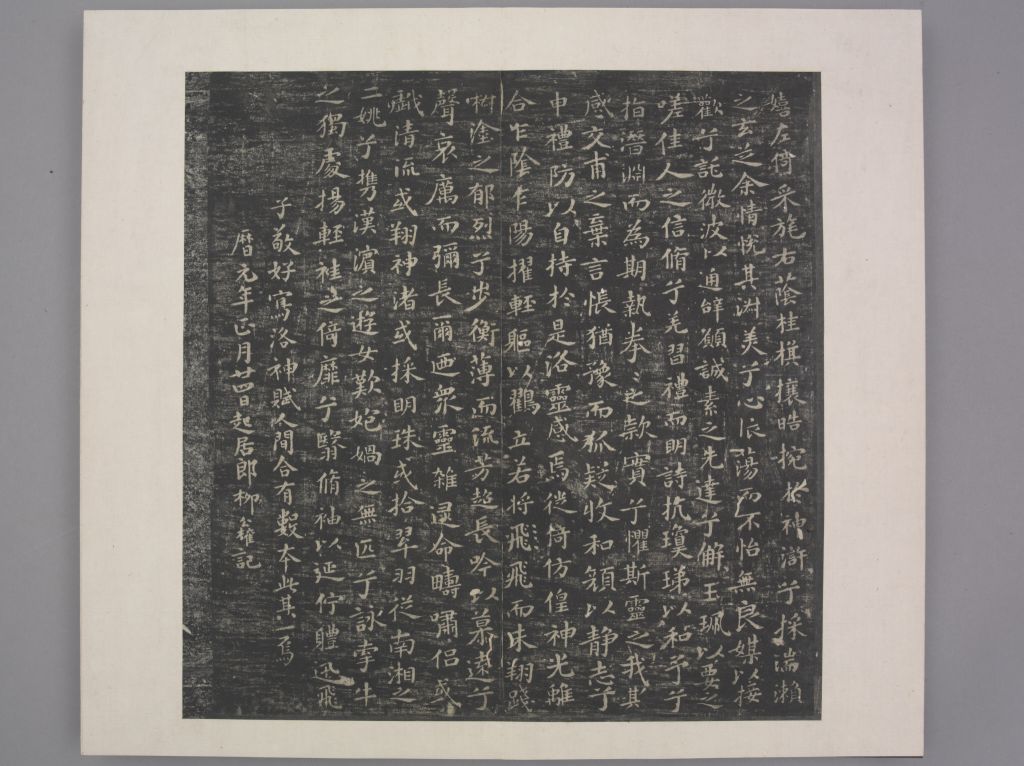 嬉左倚采旄右蔭桂棋攘皓捥於神滸兮採湍瀨
之玄芝余情悅其淑美兮心振蕩而不怡無良媒以接
歡兮託微波以通辭願誠素之先達兮解玉珮以要之
嗟佳人之信脩兮羌習禮而明詩抗瓊珶以和予兮
指潛淵而為期執拳〻之款實兮懼斯靈之我其
感交甫之棄言悵猶豫而狐疑收和顏以靜志兮
申禮防以自持於是洛靈感焉徙倚仿偟神光離
合乍陰乍陽擢輕軀以鶴立若将飛飛而未翔踐
椒塗之郁烈兮步衡薄而流芳超長吟以慕遠兮
聲哀厲而彌長爾迺衆靈雜遝命疇嘯侶或
戲清流或翔神渚或採明珠或拾翠羽從南湘之
二姚兮攜漢濱之遊女歎匏媧之無匹兮詠牽牛
之獨處揚輕袿之倚靡兮翳脩袖以延佇體迅飛
子敬好寫洛神賦人間合有數本此其一焉
曆元年正月廿四日起居郎柳記